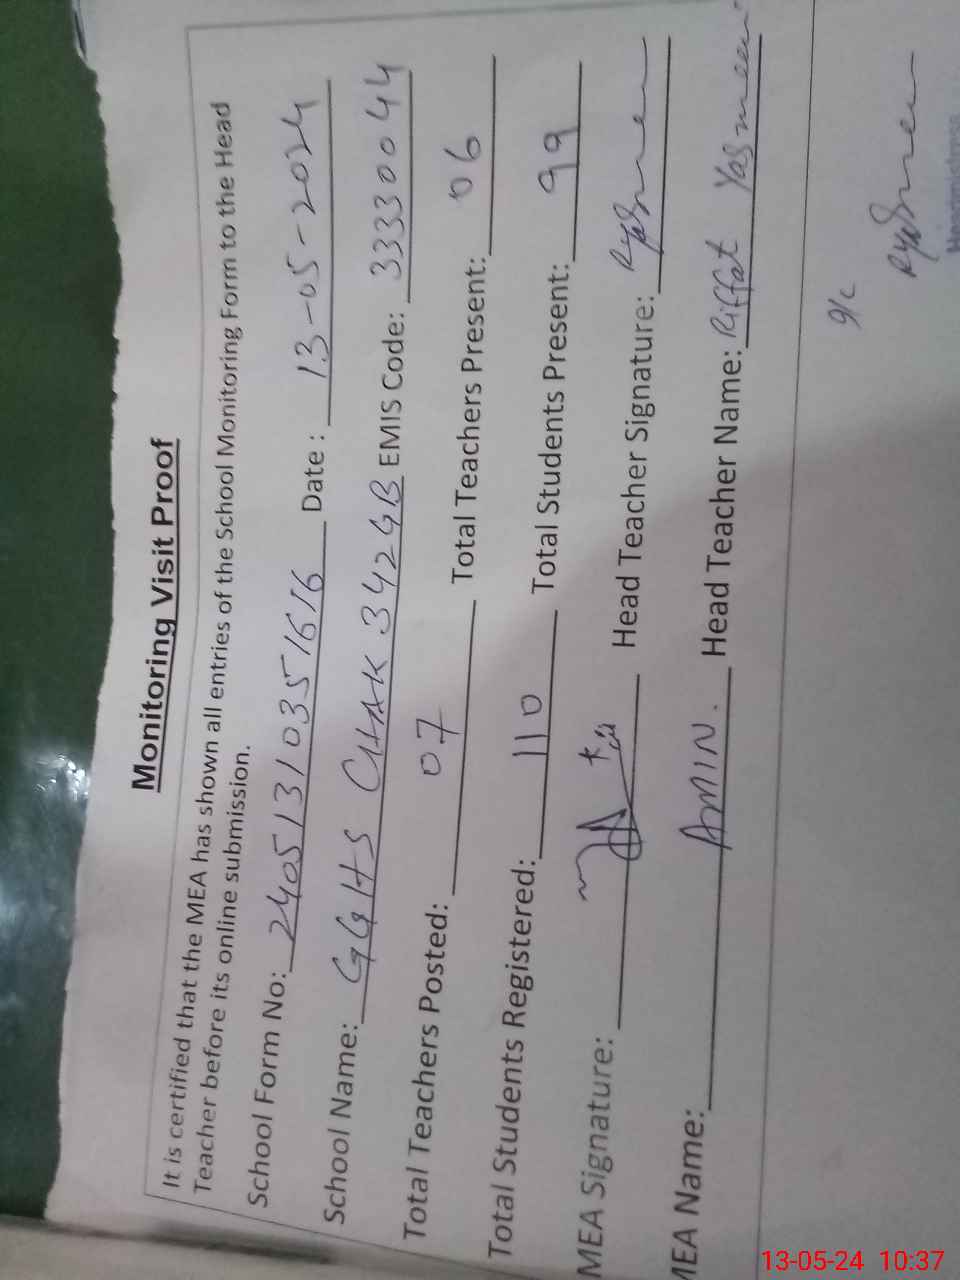 Monitoring Visit Proof
It is certified that the MEA has shown all entries of the School Monitoring Form to the Head
Teacher before its online submission.
School Form No: 24051310351616 Date : 13-05-2024
School Name: GGHS CHAK 342GB EMIS Code: 33330044
Total Teachers Posted: 07 Total Teachers Present: 06
Total Students Registered: 110 Total Students Present: 99
MEA Signature: Head Teacher Signature:
MEA Name: AMIN. Head Teacher Name: Riffat Yasmeen
9/c
Headmistress
13-05-24 10:37